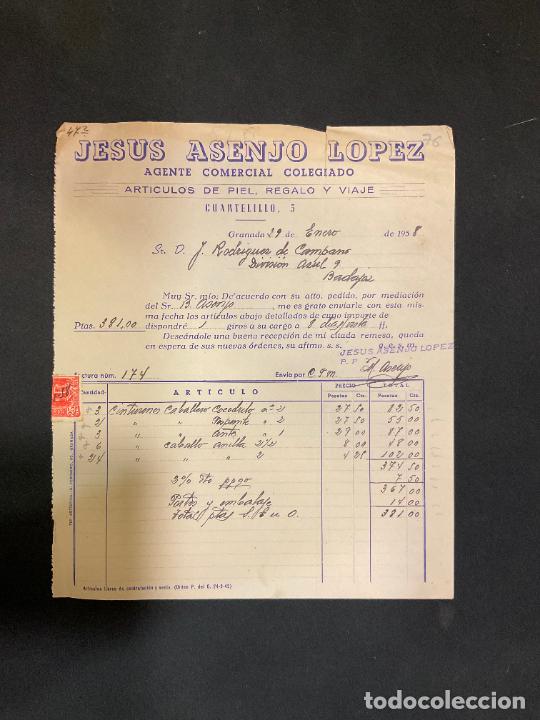 473
76
JESUS ASENJO LOPEZ
AGENTE COMERCIAL COLEGIADO
ARTICULOS DE PIEL, REGALO Y VIAJE
CUARTELILLO, 5
Granada 29 de Enero de 1958
Sr. D. J. Rodriguez de Campano
División Azul 9
Badajoz
Muy Sr. mío: De acuerdo con su atto. pedido, por mediación
del Sr. B. Asenjo, me es grato enviarle con esta mis-
ma fecha los artículos abajo detallados de cuyo importe de
Ptas. 381,00 dispondré 1 giros a su cargo a 8 días vista ff.
Deseándole una buena recepción de mi citada remesa, queda
en espera de sus nuevas órdenes, su aftmo. s. s. q. e. s. m.
JESUS ASENJO LOPEZ
P. P.
Factura núm. 174 Envío por
Cantidad ARTICULO PRECIO TOTAL
Pesetas Cts. Pesetas Cts.
3 Cinturones caballero cocodrilo nº 21 27 50 82 50
2 " " 21 27 50 55 00
3 " " Ante " 1 29 00 87 00
6 " caballo anilla 2 1/2 8 00 48 00
24 " " " 2 4 25 102 00
374 50
2% Dto ppgo 7 50
367 00
Portes y embalaje 14 00
Total ptas S. E. u O. 381 00
Artículos libres de contratación y venta. (Orden P. del G. 24-3-45)
todocoleccion
todocoleccion.net